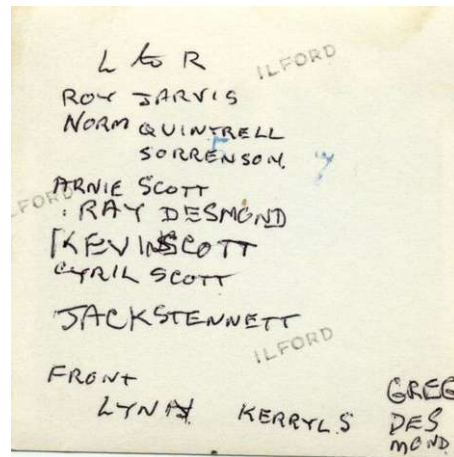 L to R
ILFORD
ROY JARVIS
NORM QUINTRELL
SORRENSON
7
ARNIE SCOTT
FORD
RAY DESMOND
KEVIN SCOTT
CYRIL SCOTT
JACK STENNETT
ILFORD
FRONT
LYN KERRYL S GREG
DES
MOND